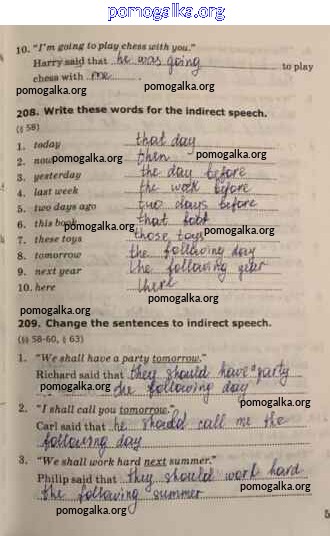 pomogalka.org
10. "I'm going to play chess with you."
Harry said that he was going to play
chess with me.
pomogalka.org pomogalka.org
208. Write these words for the indirect speech.
(§ 58)
1. today that day
2. now then
pomogalka.org pomogalka.org
3. yesterday the day before
4. last week the week before
5. two days ago two days before
6. this book that book
pomogalka.org
7. these toys those toys
pomogalka.org
8. tomorrow the following day
9. next year the following year
10. here there
pomogalka.org
pomogalka.org
209. Change the sentences to indirect speech.
(§§ 58-60, § 63)
1. "We shall have a party tomorrow."
Richard said that they should have a party
the following day
pomogalka.org
2. "I shall call you tomorrow."
pomogalka.org
Carl said that he should call me the
following day
pomogalka.org
3. "We shall work hard next summer."
Philip said that they should work hard
the following summer
pomogalka.org
pomogalka.org
5